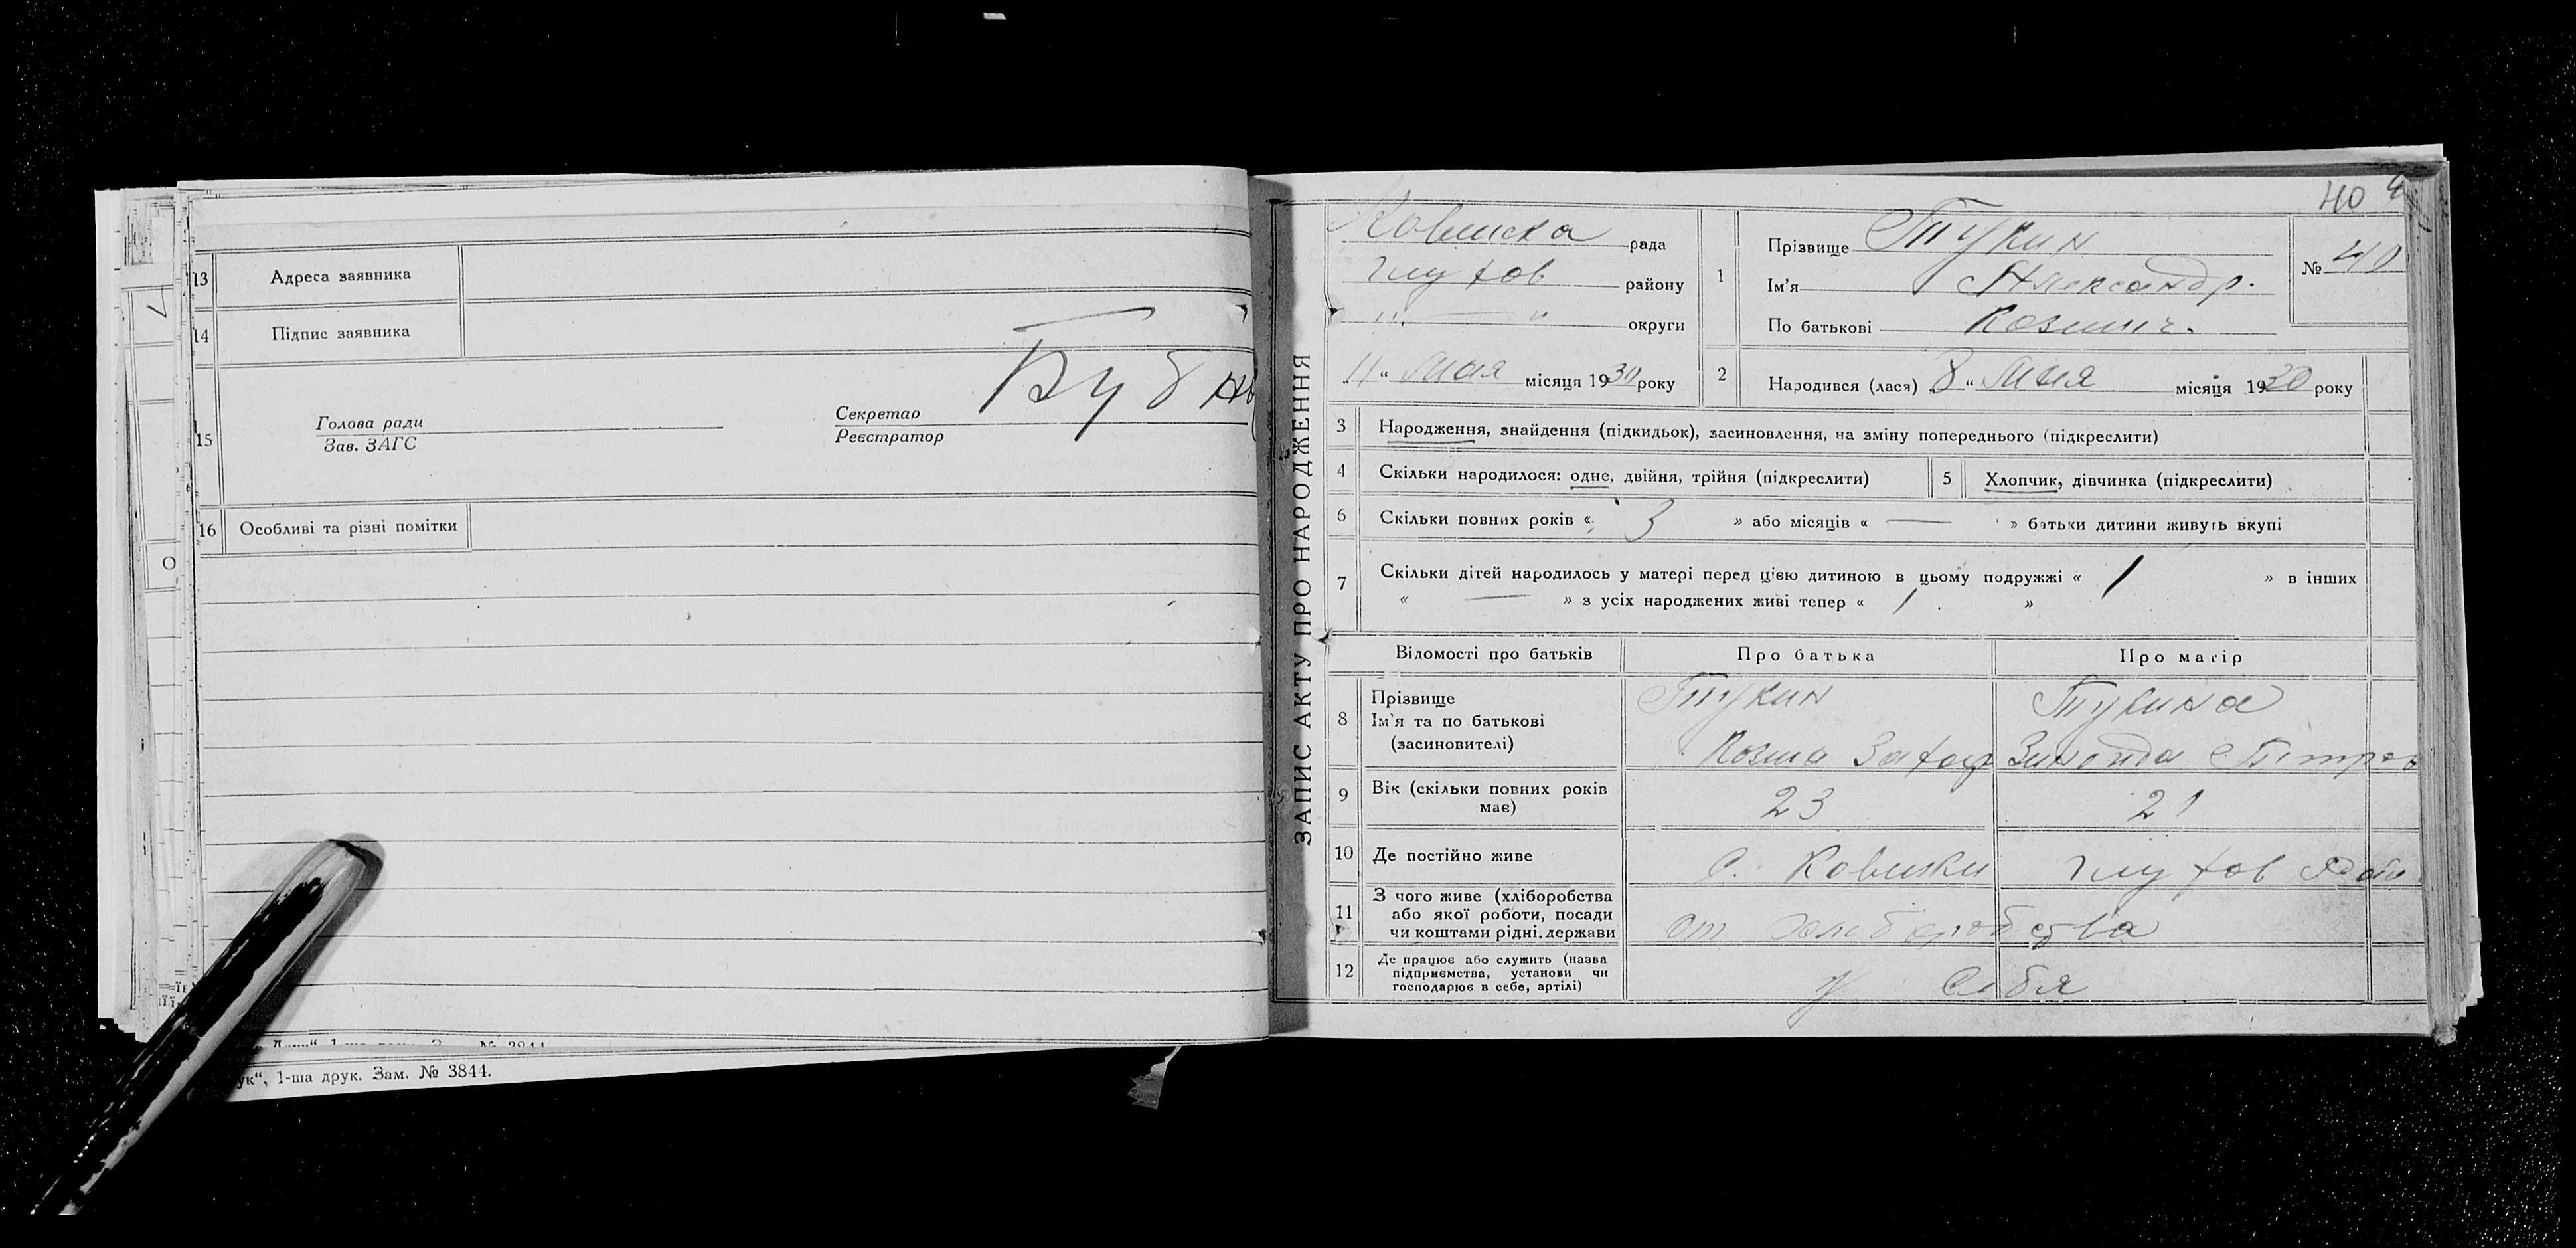 13 Адреса заявника
14 Підпис заявника
15 Голова ради
Зав. ЗАГС
Секретар
Реєстратор
16 Особливі та різні помітки
ук“, 1-ша друк. Зам. № 3844.
ЗАПИС АКТУ ПРО НАРОДЖЕННЯ
40
рада
Глухов району
„ — „ округи
„11“ мая місяця 1930 року
1 Прізвище
Ім'я Александр.
По батькові Козмич.
№ 40
2 Народився (лася) „8“ мая місяця 1930 року
3 Народження, знайдення (підкидьок), засиновлення, на зміну попереднього (підкреслити)
4 Скільки народилося: одне, двійня, трійня (підкреслити)
5 Хлопчик, дівчинка (підкреслити)
6 Скільки повних років « 3 » або місяців « — » батьки дитини живуть вкупі
7 Скільки дітей народилось у матері перед цією дитиною в цьому подружжі « 1 » в інших
« — » з усіх народжених живі тепер « 1. »
Відомості про батьків Про батька Про матір
8 Прізвище
Ім'я та по батькові
(засиновителі)
Козма Захар
Петров
9 Вік (скільки повних років має) 23 21
10 Де постійно живе с. Глухов Рай
11 З чого живе (хліборобства
або якої роботи, посади
чи коштами рідні, держави
от хлеборобства
12 Де працює або служить (назва
підприємства, установи чи
господарює в себе, артілі)
у себя